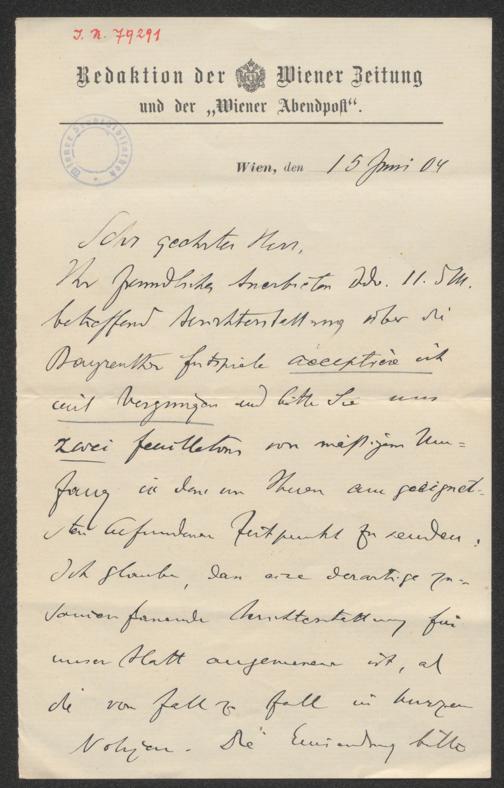 J. N. 79291
Redaktion der Wiener Zeitung
und der „Wiener Abendpost“.
Wiener Stadtbibliothek
Wien, den 15 Juni 04
Sehr geehrter Herr,
Ihr freundliches Anerbieten ddo. 11. d M.
betreffend Berichterstattung über die
Bayreuther Festspiele acceptire ich
mit Vergnügen und bitte Sie uns
zwei Feuilletons von mäßigem Um=
fang in dem von Ihnen am geeignet-
sten befundenen Zeitpunkt zu senden.
Ich glaube, dass eine derartige zu=
sammenfassende Berichterstattung für
unser Blatt angemessener ist, als
die von Fall zu Fall in kurzen
Notizen. Die Einsendung bitte